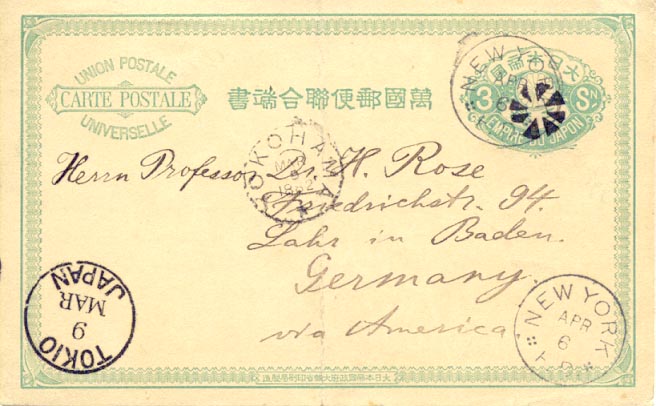 UNION POSTALE
CARTE POSTALE
UNIVERSELLE
書端合聯便郵國萬
大日本帝國
3 Sn
EMPIRE DU JAPON
NEW YORK
APR
6
YOKOHAMA
MAR
Herrn Professor Dr. H. Rose
Friedrichstr. 94.
Lahr in Baden.
Germany.
via America
TOKIO
9
MAR
JAPAN
NEW YORK
APR
6